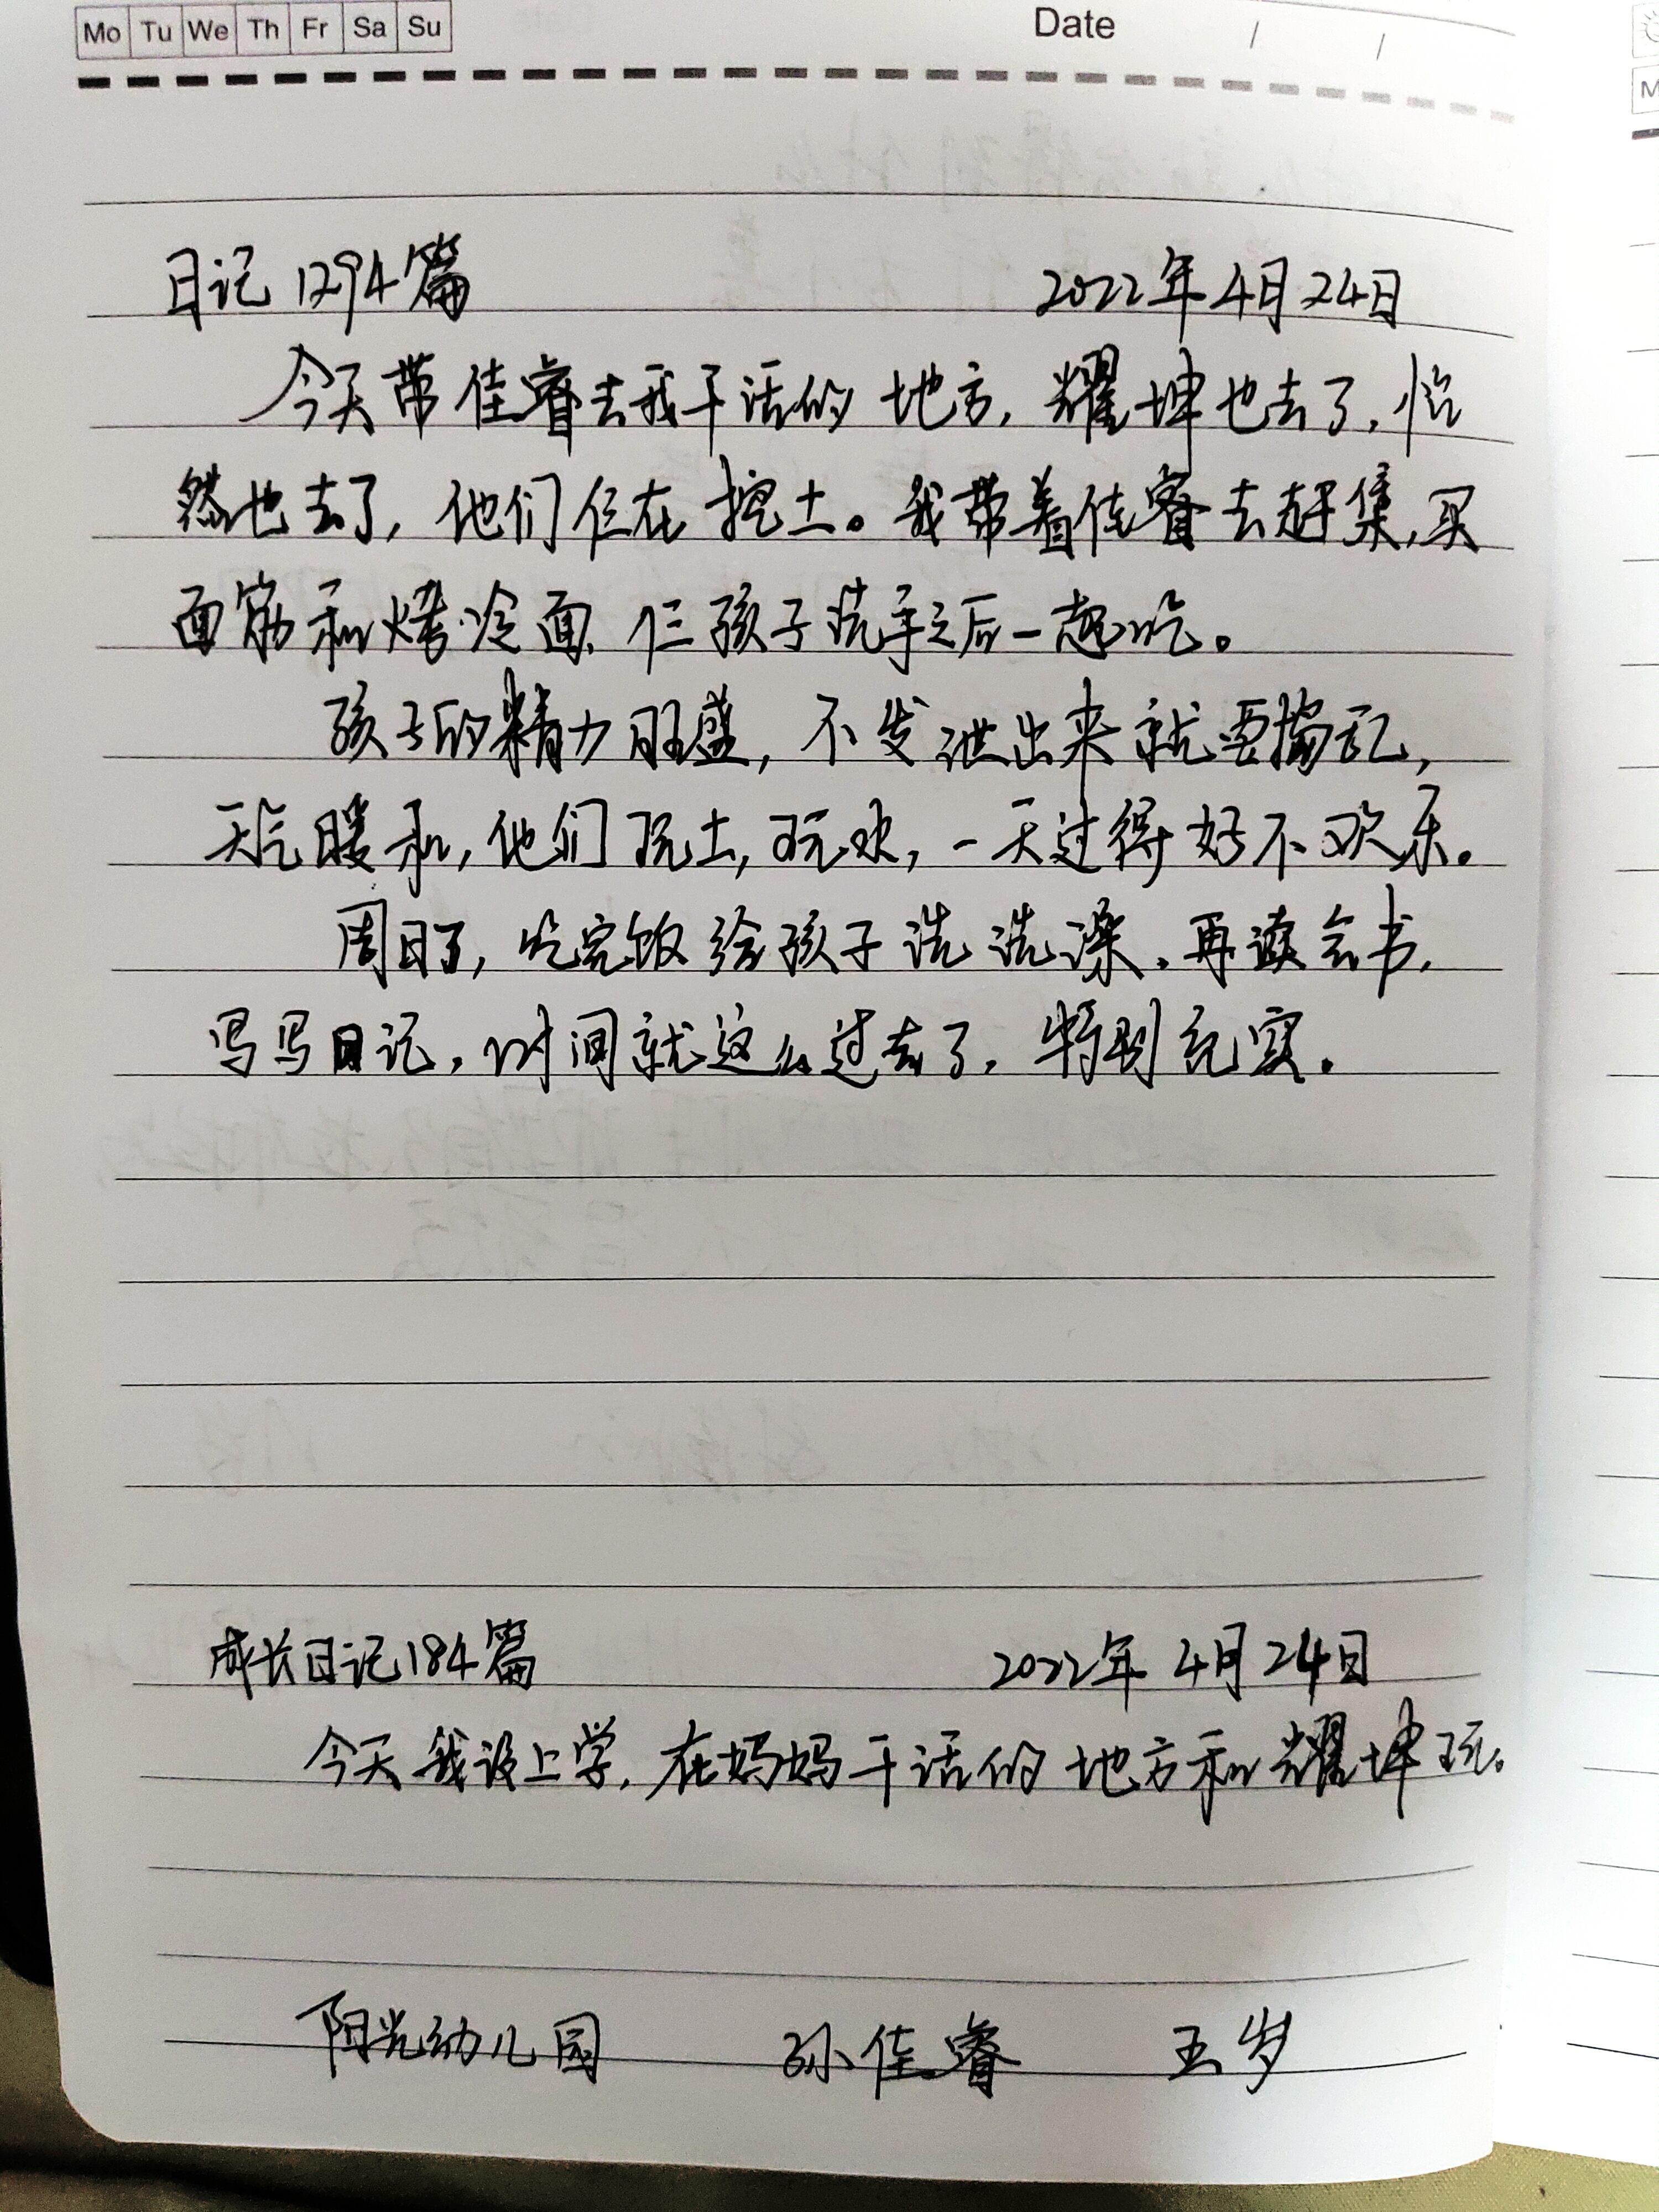 Mo Tu We Th Fr Sa Su Date / /
日记1294篇 2022年4月24日
今天带佳睿去我干活的地方,耀坤也去了,怡
然也去了,他们仨在挖土。我带着佳睿去赶集,买
面筋和烤冷面,仨孩子洗手之后一起吃。
孩子的精力旺盛,不发泄出来就要捣乱,
天气暖和,他们玩土,玩水,一天过得好不欢乐。
周日了,吃完饭给孩子洗洗澡,再读会书,
写写日记,时间就这么过去了,特别充实。
成长日记184篇 2022年4月24日
今天我没上学,在妈妈干活的地方和耀坤玩。
阳光幼儿园 孙佳睿 五岁